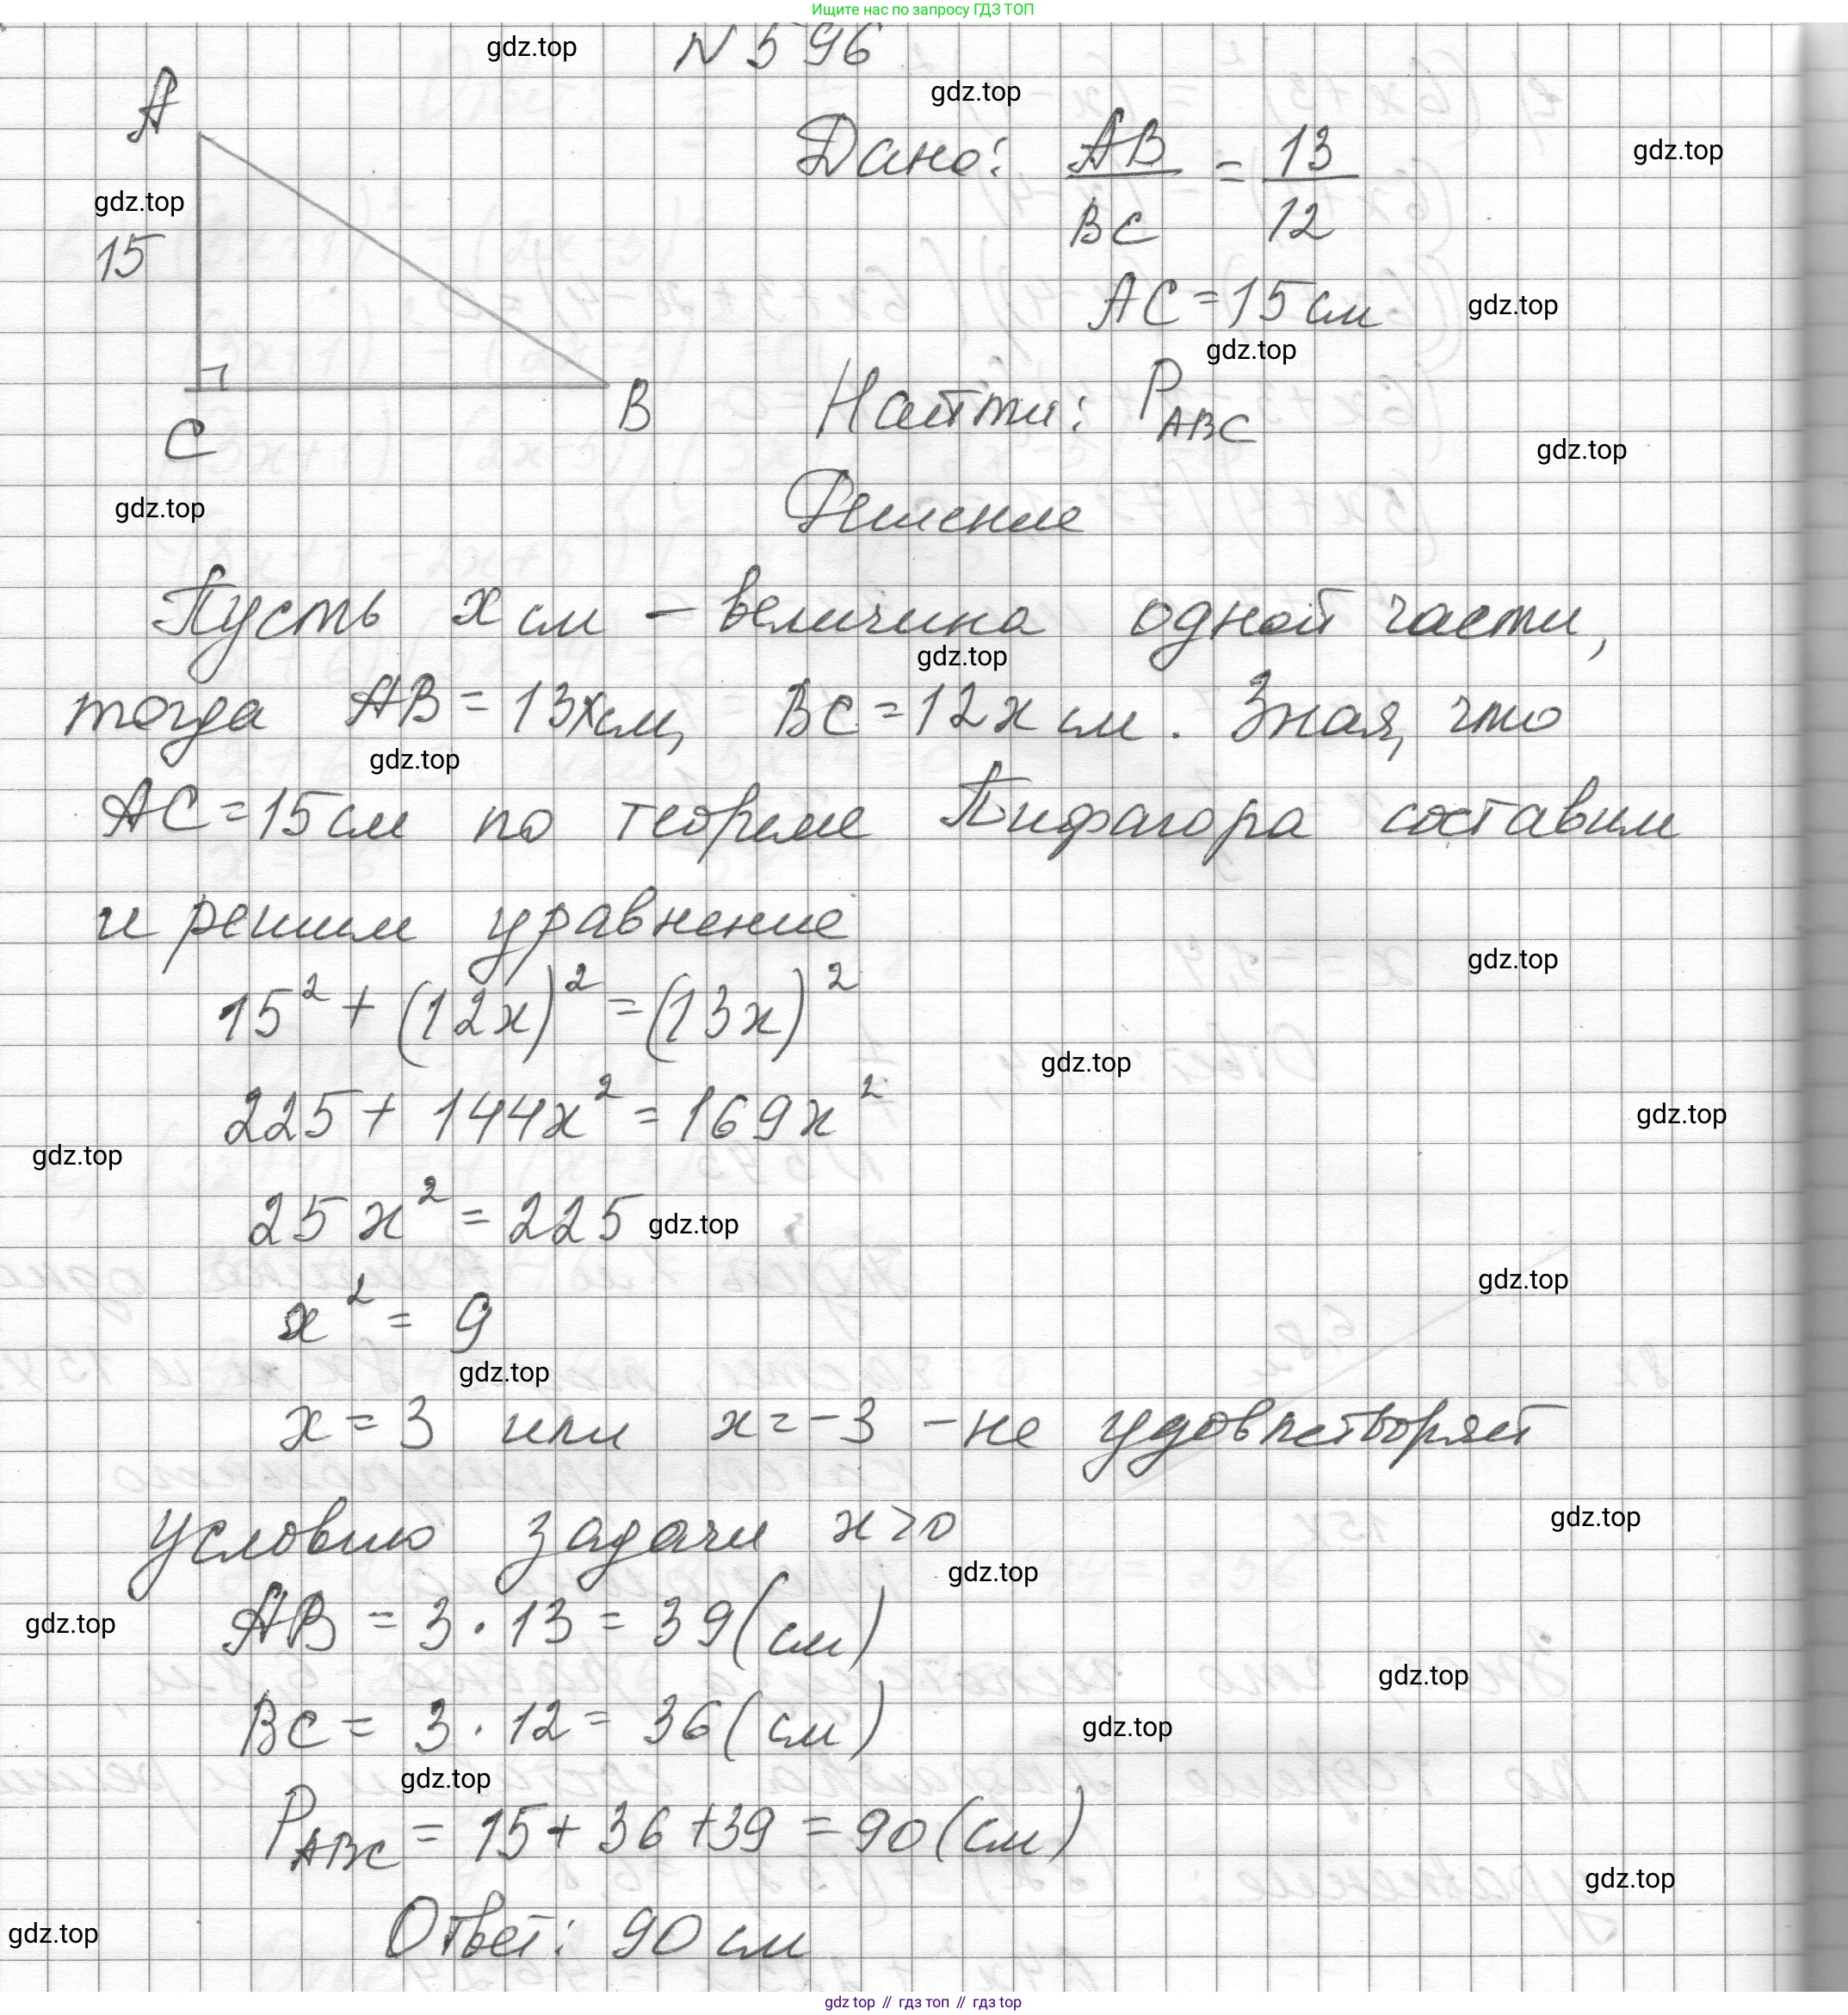 Ищите нас по запросу ГДЗ ТОП
gdz.top
N 596
gdz.top
A
Дано: AB/BC = 13/12
gdz.top
gdz.top
15
AC = 15 см
gdz.top
gdz.top
C
B
Найти: P_ABC
gdz.top
gdz.top
Решение
Пусть x см – величина одной части,
gdz.top
тогда AB = 13x см, BC = 12x см. Зная, что
gdz.top
AC = 15 см по теореме Пифагора составим
и решим уравнение
gdz.top
15² + (12x)² = (13x)²
gdz.top
225 + 144x² = 169x²
gdz.top
gdz.top
25x² = 225
gdz.top
gdz.top
x² = 9
gdz.top
x = 3 или x = -3 – не удовлетворяет
условию задачи x > 0
gdz.top
gdz.top
AB = 3 · 13 = 39 (см)
gdz.top
gdz.top
BC = 3 · 12 = 36 (см)
gdz.top
gdz.top
P_ABC = 15 + 36 + 39 = 90 (см)
gdz.top
Ответ: 90 см
gdz.top
gdz top // гдз топ // гдз top